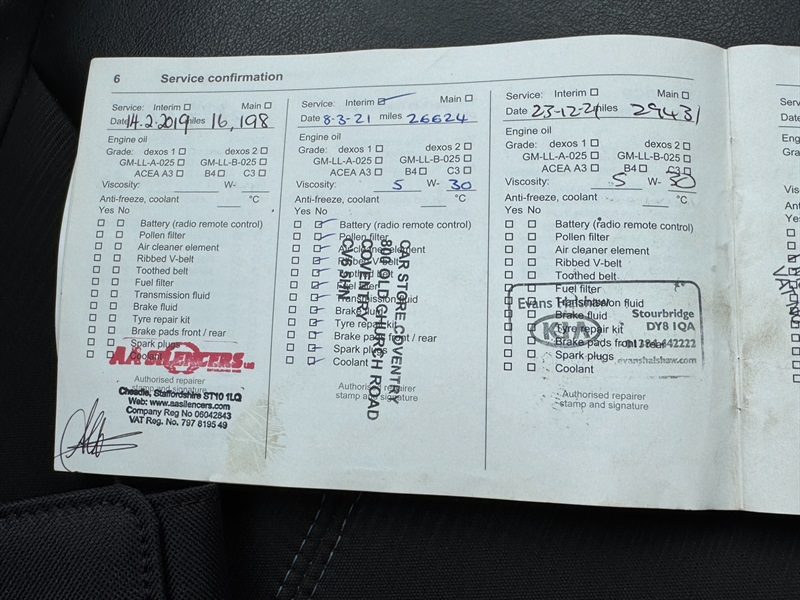 6 Service confirmation
Service: Interim Main
Date 14.2.2019 miles 16,198
Engine oil
Grade: dexos 1 dexos 2
GM-LL-A-025 GM-LL-B-025
ACEA A3 B4 C3
Viscosity: W-
Anti-freeze, coolant °C
Yes No
Battery (radio remote control)
Pollen filter
Air cleaner element
Ribbed V-belt
Toothed belt
Fuel filter
Transmission fluid
Brake fluid
Tyre repair kit
Brake pads front / rear
Spark plugs
Coolant
AA SILENCERS Ltd
Authorised repairer
stamp and signature
Cheadle, Staffordshire ST10 1LQ
Web: www.aasilencers.com
Company Reg No 06042843
VAT Reg. No. 797 8195 49
Service: Interim Main
Date 8-3-21 miles 26624
Engine oil
Grade: dexos 1 dexos 2
GM-LL-A-025 GM-LL-B-025
ACEA A3 B4 C3
Viscosity: 5 W- 30
Anti-freeze, coolant °C
Yes No
Battery (radio remote control)
Pollen filter
Air cleaner element
Ribbed V-belt
Toothed belt
Fuel filter
Transmission fluid
Brake fluid
Tyre repair kit
Brake pads front / rear
Spark plugs
Coolant
Authorised repairer
stamp and signature
CAR STORE COVENTRY
800 OLD CHURCH ROAD
COVENTRY
Service: Interim Main
Date 23-12-21 miles 29431
Engine oil
Grade: dexos 1 dexos 2
GM-LL-A-025 GM-LL-B-025
ACEA A3 B4 C3
Viscosity: 5 W- 30
Anti-freeze, coolant °C
Yes No
Battery (radio remote control)
Pollen filter
Air cleaner element
Ribbed V-belt
Toothed belt
Fuel filter
Transmission fluid
Brake fluid
Tyre repair kit
Brake pads front / rear
Spark plugs
Coolant
Evans Halshaw
KIA
Stourbridge
DY8 1QA
evanshalshaw.com
Authorised repairer
stamp and signature